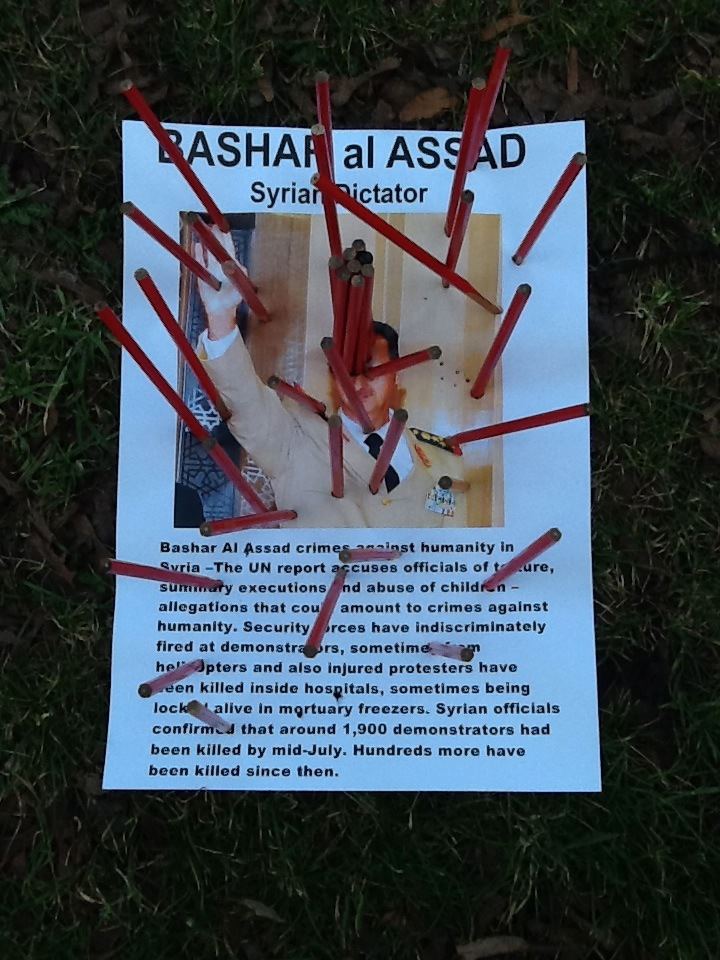 BASHAR al ASSAD
Syrian Dictator
Bashar Al Assad crimes against humanity in
Syria –The UN report accuses officials of torture,
summary executions and abuse of children –
allegations that could amount to crimes against
humanity. Security forces have indiscriminately
fired at demonstrators, sometimes from
helicopters and also injured protesters have
been killed inside hospitals, sometimes being
locked alive in mortuary freezers. Syrian officials
confirmed that around 1,900 demonstrators had
been killed by mid-July. Hundreds more have
been killed since then.